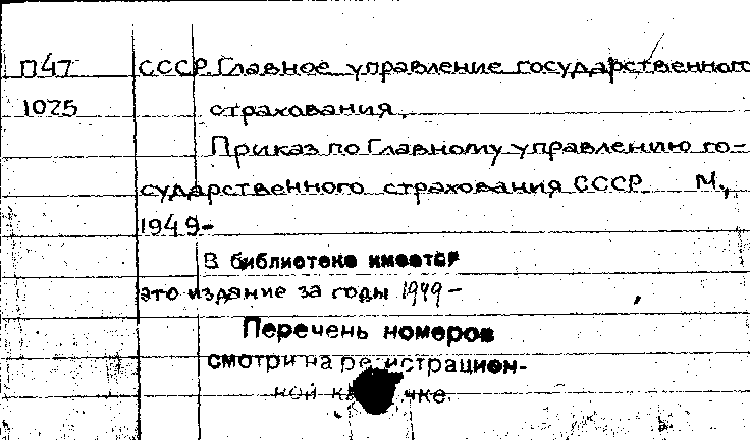 П47 СССР. Главное управление государственного
1025 страхования.
Приказ по Главному управлению го-
сударственного страхования СССР М.,
1949-
В библиотеке имеется
это издание за годы 1949-
Перечень номеров
смотри на регистрацион-
ной